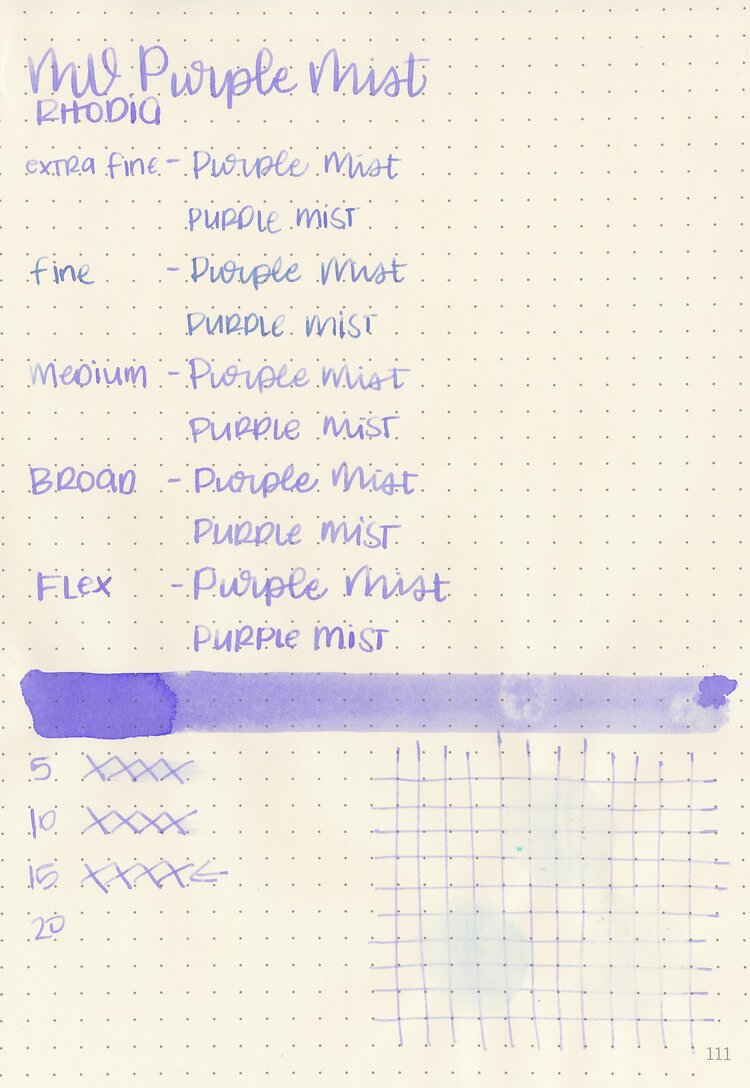 MV Purple Mist
RHODIA
extra fine - Purple Mist
PURPLE MIST
fine - Purple Mist
PURPLE MIST
Medium - Purple Mist
PURPLE MIST
BROAD - Purple Mist
PURPLE MIST
FLEX - Purple Mist
PURPLE MIST
5 XXXX
10 XXXX
15 XXXX←
20
111